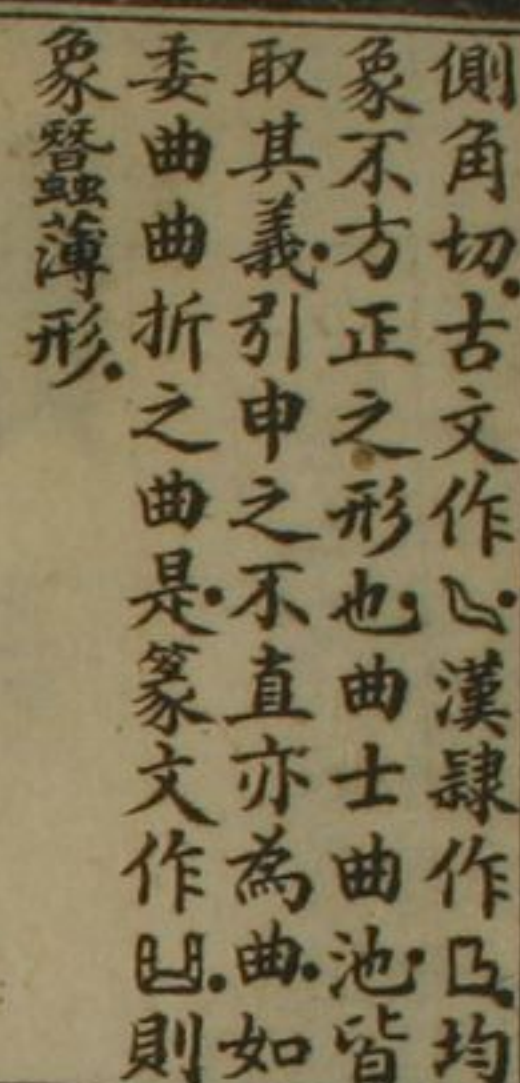 側角切.古文作𠃊.漢隸作.均
象不方正之形也.曲士曲池.皆
取其義.引申之不直亦為曲.如
委曲曲折之曲是.篆文作.則
象蠶薄形.